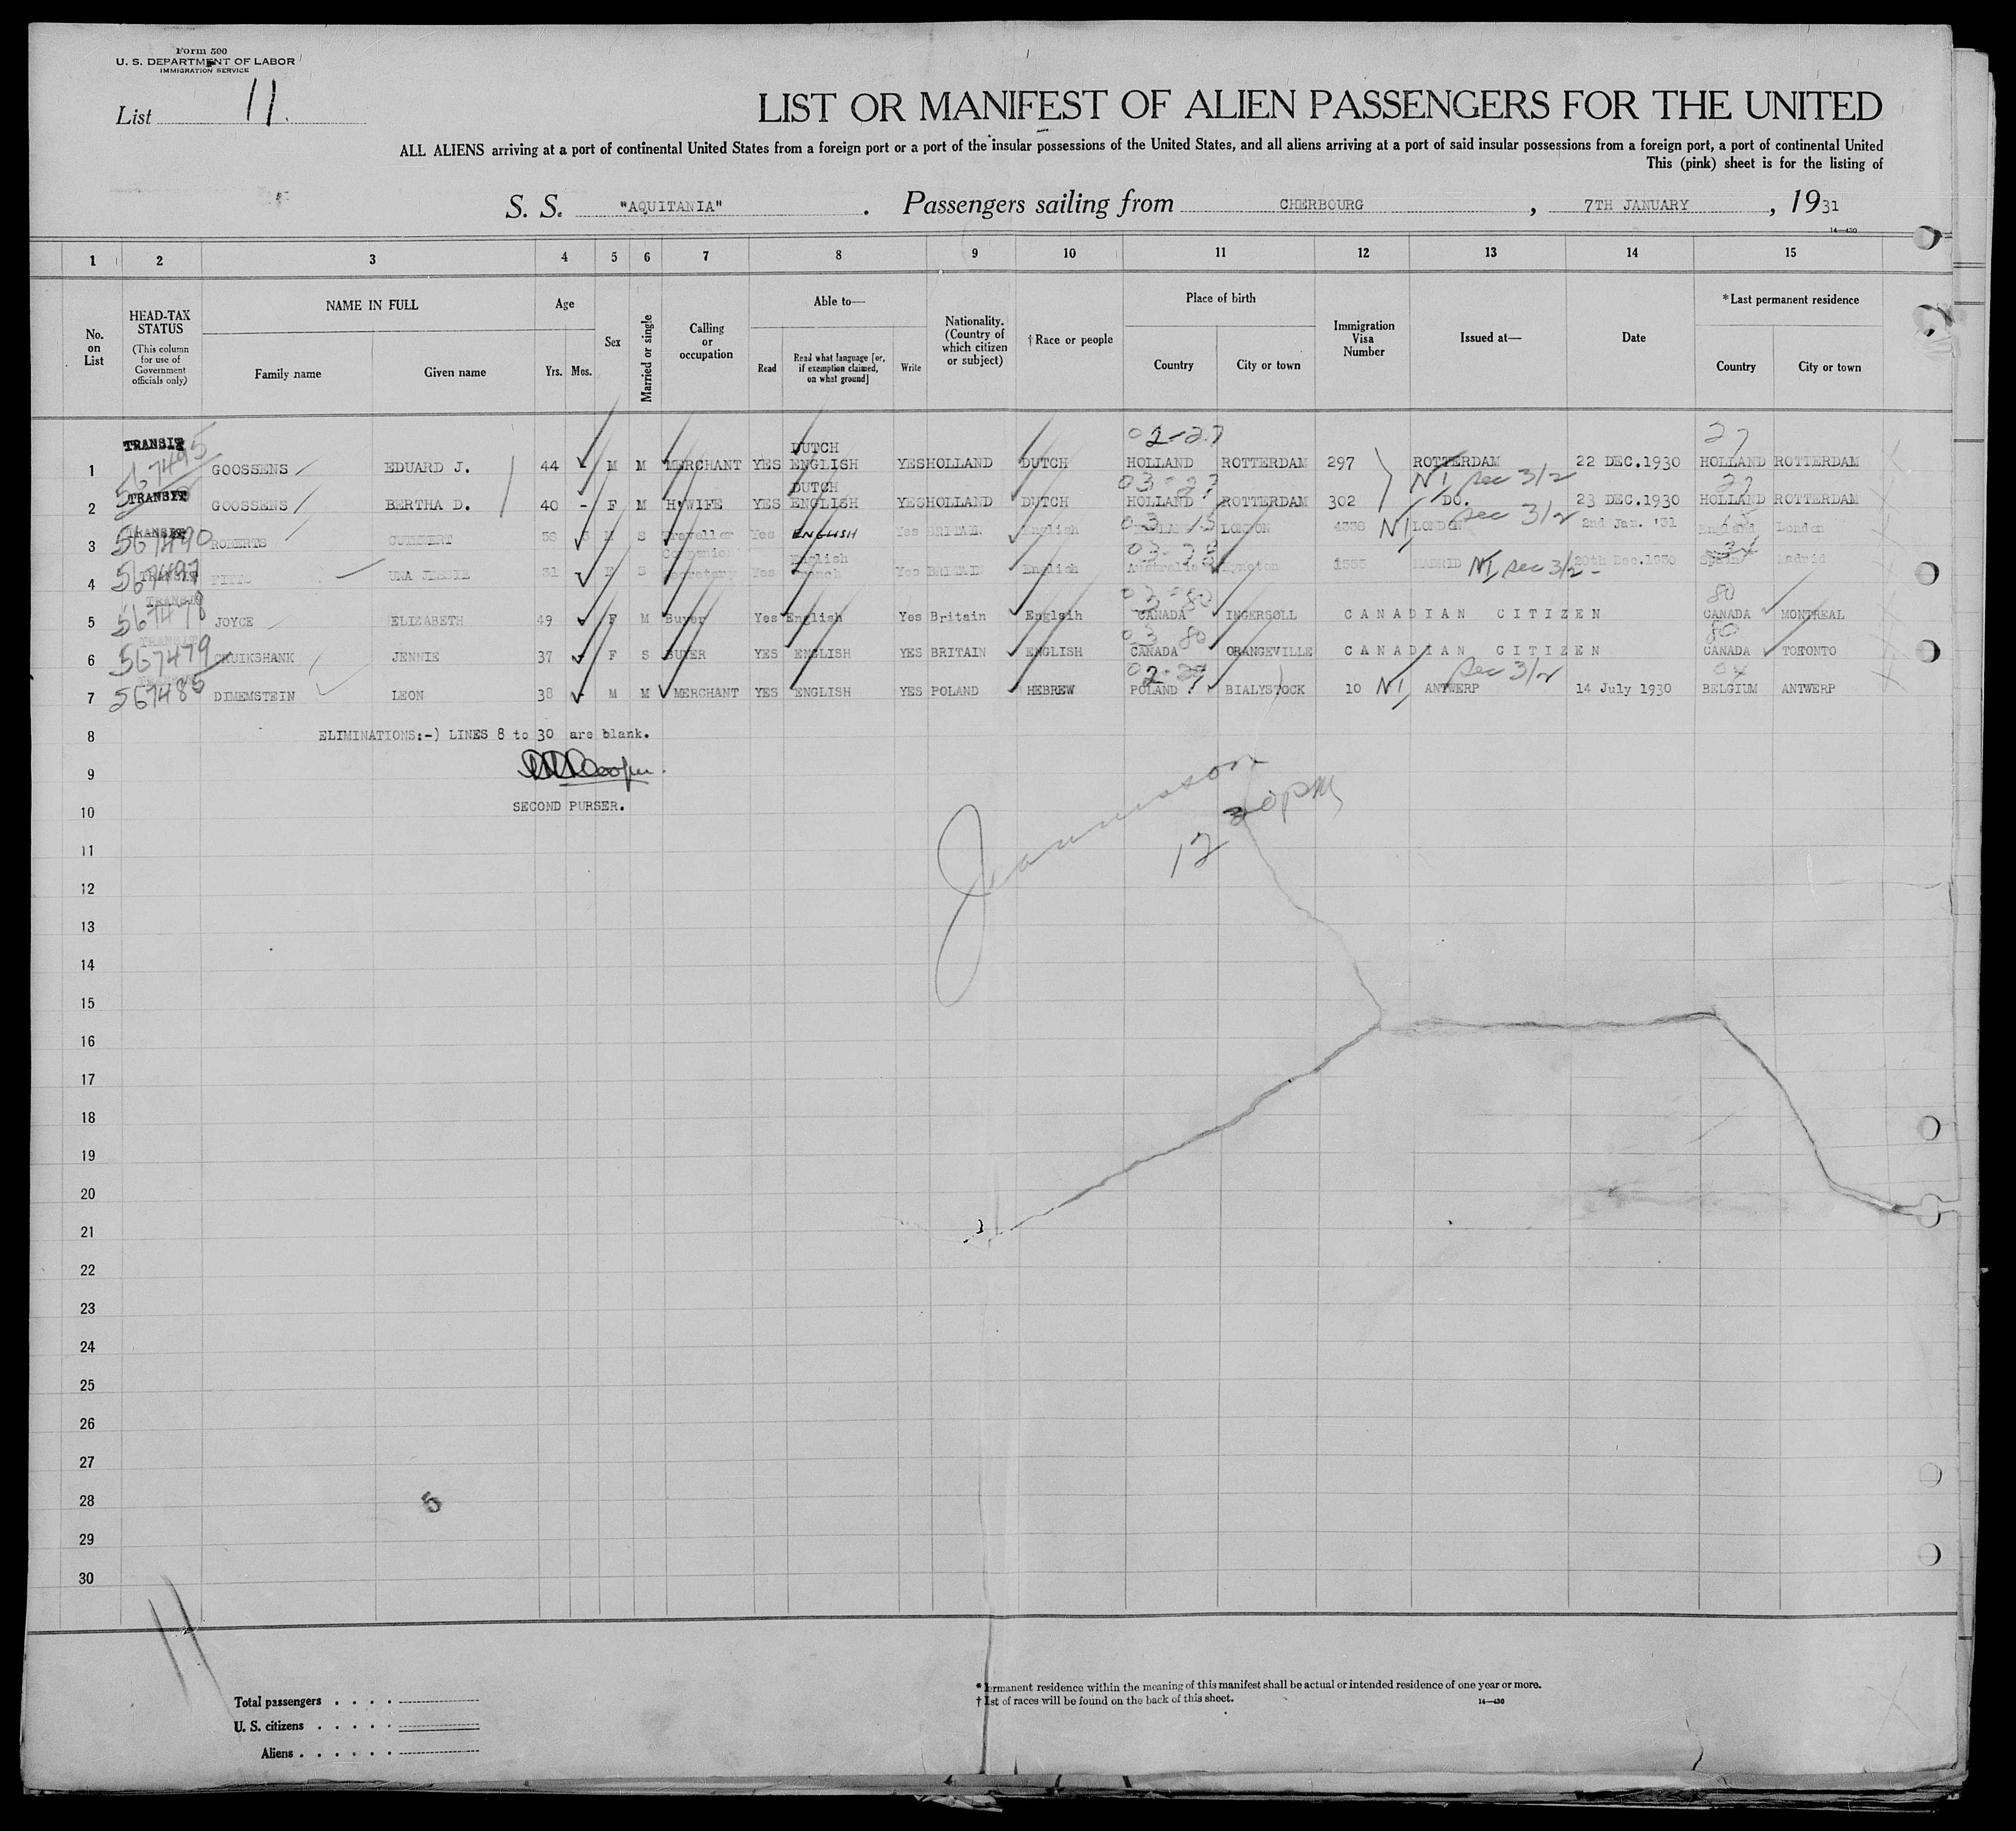 Form 500
U. S. DEPARTMENT OF LABOR
IMMIGRATION SERVICE
List 11.
LIST OR MANIFEST OF ALIEN PASSENGERS FOR THE UNITED
ALL ALIENS arriving at a port of continental United States from a foreign port or a port of the insular possessions of the United States, and all aliens arriving at a port of said insular possessions from a foreign port, a port of continental United
This (pink) sheet is for the listing of
S. S. "AQUITANIA". Passengers sailing from CHERBOURG, 7TH JANUARY, 1931
14—430
1 2 3 4 5 6 7 8 9 10 11 12 13 14 15
No. on List
HEAD-TAX STATUS
(This column for use of Government officials only)
NAME IN FULL
Family name Given name
Age
Yrs. Mos.
Sex
Married or single
Calling or occupation
Able to—
Read
Read what language [or, if exemption claimed, on what ground]
Write
Nationality. (Country of which citizen or subject)
†Race or people
Place of birth
Country City or town
Immigration Visa Number
Issued at—
Date
*Last permanent residence
Country City or town
TRANSIT 567495 DUTCH 02-27 27
1 GOOSSENS EDUARD J. 44 - M M MERCHANT YES ENGLISH YES HOLLAND DUTCH HOLLAND ROTTERDAM 297 ROTTERDAM 22 DEC.1930 HOLLAND ROTTERDAM
TRANSIT DUTCH NI Sec 3/2 27
2 GOOSSENS BERTHA D. 40 - F M H.WIFE YES ENGLISH YES HOLLAND DUTCH HOLLAND ROTTERDAM 302 DO. 23 DEC.1930 HOLLAND ROTTERDAM
TRANSIT 567490 03 15 Sec 3/2
3 ROBERTS M S Traveller Yes ENGLISH Yes BRITAIN English LONDON 4338 NI LONDON 2nd Jan. '31 England London
TRANSIT 567497 Companion English 03-
4 UNA JESSIE 31 - F S Secretary Yes French Yes BRITAIN English Australia 1333 MADRID NI Sec 3/2 1930 Spain Madrid
TRANSIT 567478 03-80 80
5 JOYCE ELIZABETH 49 F M Buyer Yes English Yes Britain Englsih CANADA INGERSOLL CANADIAN CITIZEN CANADA MONTREAL
TRANSIT 567479 03 80 80
6 CRUIKSHANK JENNIE 37 - F S BUYER YES ENGLISH YES BRITAIN ENGLISH CANADA ORANGEVILLE CANADIAN CITIZEN CANADA TORONTO
TRANSIT 567485 Sec 3/2 04
7 DIMEMSTEIN LEON 38 - M M MERCHANT YES ENGLISH YES POLAND HEBREW POLAND BIALYSTOCK 10 NI ANTWERP 14 July 1930 BELGIUM ANTWERP
8 ELIMINATIONS:-) LINES 8 to 30 are blank.
9
10 SECOND PURSER.
12 30 PM
11
12
13
14
15
16
17
18
19
20
21
22
23
24
25
26
27
28 5
29
30
11
Total passengers . . . .
U. S. citizens . . . . .
Aliens . . . . . .
*ermanent residence within the meaning of this manifest shall be actual or intended residence of one year or more.
†ist of races will be found on the back of this sheet. 14—430